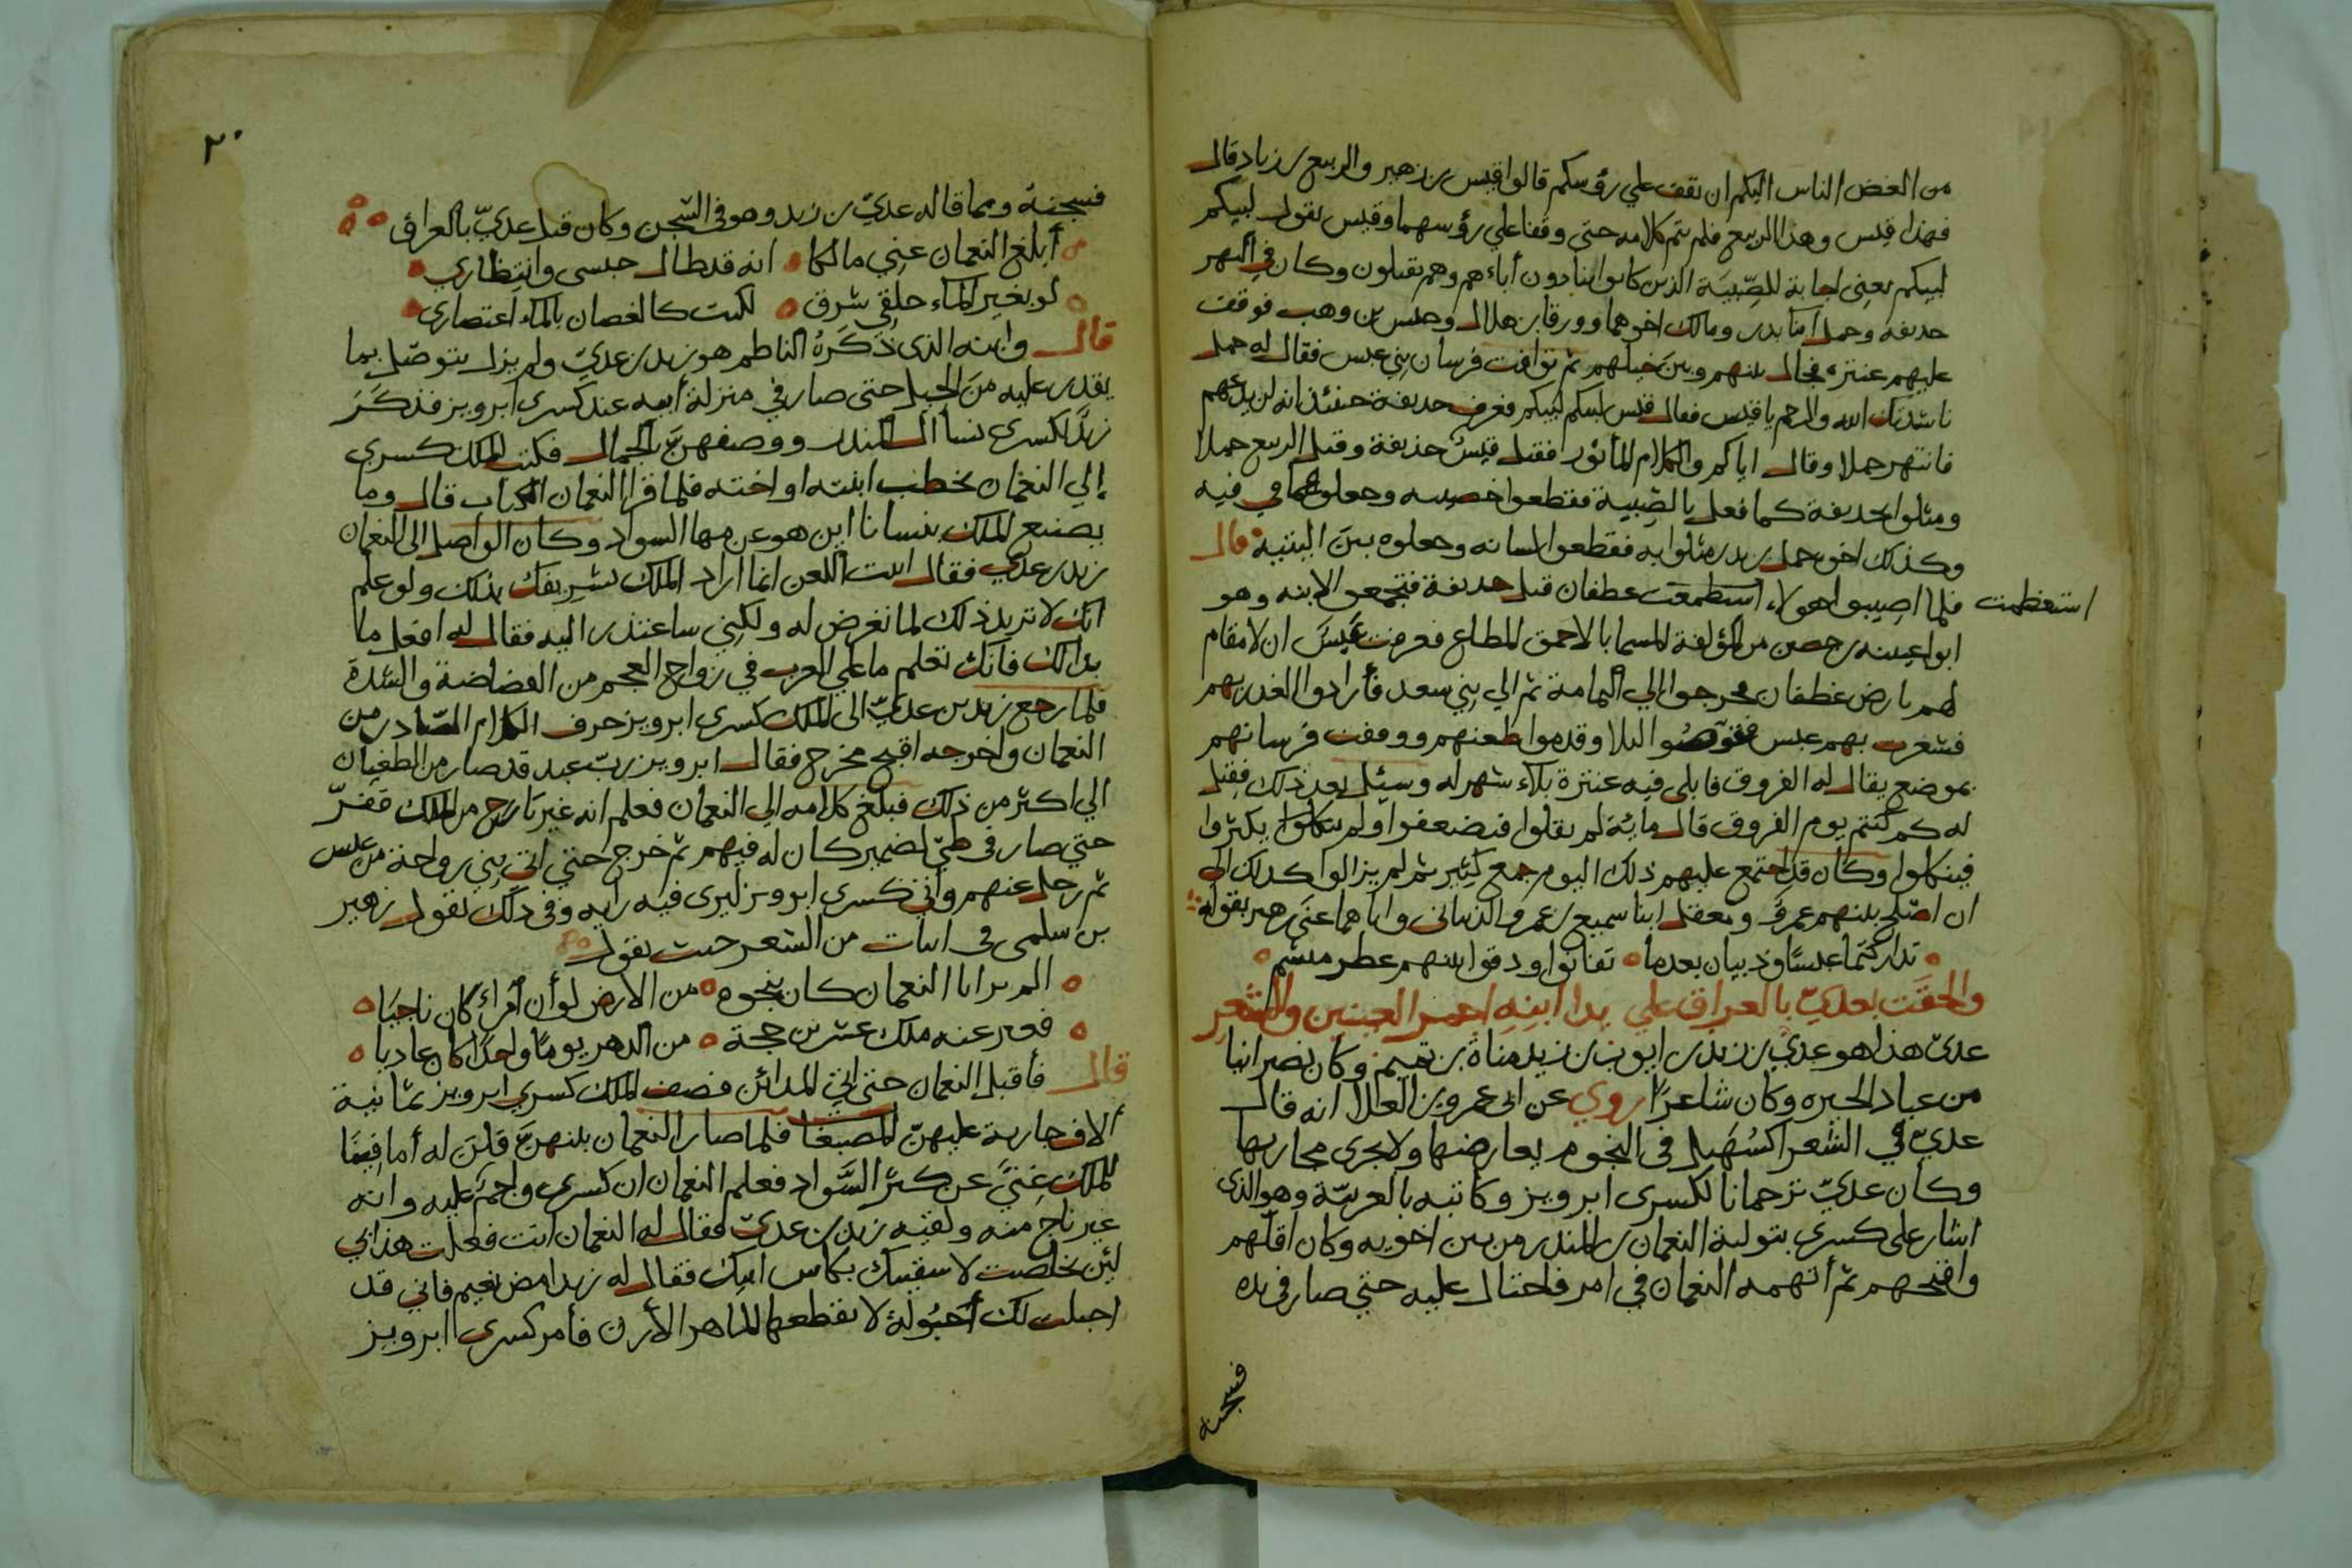 من ابغض الناس اليكم ان تقف علي رؤسكم قالوا قيس بن زهير والربيع بن زياد قال
فهذا قيس وهذا الربيع فلم يتم كلامه حتى وقفا علي رؤسهما وقيس يقول لبيكم
لبيكم يعني اجابة للصِّبيَة الذين كانوا ينادون أباءهم وهم يقتلون وكان في النهر
حذيفة وحمل ابنا بدر ومالك اخوهما وورقا بن هلال وحلس بن وهب فوقف
عليهم عنترة فحال بينهم وبين خيلهم ثم توافت فرسان بني عبس فقال له حمل
ناشدتك الله والرحم يا قيس فقال قيس لبيكم لبيكم فعرف حذيفة حينئذ انه لن يدعهم
فانتهر حملا وقال اياكم والكلام المأثور فقتل قيسٌ حذيفة وقتل الربيع حملا
ومثلوا بحذيفة كما فعل بالصِّبية فقطعوا خصيييه وجعلوهما في فيه
وكذلك اخوه حمل بن بدر مثلوا به فقطعوا لسانه وجعلوه بين اليتيه قال
فلما اصيبوا هولاء استطمعت غطفان قتل حذيفة فتجمعوا لابنه وهو
استعظمت
ابو عيينه بن حصن من المؤلفة المسما بالاحمق المطاع فعرفت عَبسَ ان لا مقام
لهم بارض غطفان فخرجوا الي اليمامة ثم الي بني سعد فأرادوا الغدر بهم
فشعرت بهم عبس فقوضوا ليلا وقدموا ظعنهم ووقفت فرسانهم
بموضع يقال له الفروق فابلى فيه عنترة بلاء شهر له وسئل بعد ذلك فقيل
له كم كنتم يوم الفروق قال مايئة لم نقلوا فنضعفوا ولم نكثروا
فينكلوا وكان قد اجتمع عليهم ذلك اليوم جمع كثير ثم لم يزالوا كذلك الي
ان اصلح بينهم عمرو ومعقل ابنا سميع بن عمرو الذبياني واياهما عنى زهير بقوله
تداركتما عبسًا وذبيان بعدما تفانوا ودقوا بينهم عطر منشم
والحقَت بعديّ بالعراق علي يدا ابنِهِ احمر العينين والشعرِ
عديّ هذا هو عديّ بن زيد بن ايوب بن زيد مناة بن تميم وكان نصرانيا
من عباد الحيره وكان شاعرًا روي عن ابي عمرو بن العلا انه قال
عديّ في الشعر اكسُهَيل في النجوم يعارضها ولا يجرى مجاريها
وكان عديّ ترجمانا لكسرى ابرويز وكاتبه بالعربيّة وهو الذي
اشار على كسرى بتولية النعمان بن المنذر من بين اخويه وكان اقلهم
واقبحهم ثم أتهمه النعمان في امر فاحتال عليه حتى صار في يده
فسجنه
٢٠
فسجنهُ ومما قاله عديّ بن زيد وهو في السّجن وكان قبل عديّ بالعراق
أبلغ النعمان عنِي مالكا انه قد طال حبسى وانتِظاري
لو بغير الماء حلقِي شرق لكنت كالغصان بالماء اعتصاري
قال وابنه الذى ذَكَرَهُ الناظم هو زيد بن عديّ ولم يزل يتوصّل بما
يقدر عليه منَ الحيل حتى صار في منزلة أبيه عند كسرى ابرويز فذكَرَ
زيدٌ لكسرى نسأ ال المنذر ووصفهنّ بالجمال فكتب الملك كسري
إلي النعمان يخطب ابنته او اخته فلما قرا النعمان الكتاب قال وما
يصنع الملك بنسانا اين هو عن مها السواد وكان الواصل الى النعمان
زيد بن عدي فقال ابيت اللعن انما اراد الملك تشريفك بذلك ولو علم
انك لا تريد ذلك لما تعرض له ولكنِي ساعتذر اليه فقال له افعل ما
بدالك فانك تعلم ما علي العرب في زواج العجم من الغضاضة والشدة
فلما رجع زيد بن عديّ الى الملك كسرى ابرويز حرف الكلام الصّادر من
النعمان واخرجه اقبح مخرج فقال ابرويز ربّ عبد قد صار من الطغيان
الي اكثر من ذلك فبلغ كلامه الي النعمان فعلم انه غير ناج من الملك ففرّ
حتي صار في طيّ لضمير كان له فيهم ثم خرج حتي اتي بني رواحة من عبس
ثم رحل عنهم واتي كسرى ابرويز ليرى فيه رايه وفي ذلك يقول زهير
بن سلمى في ابيات من الشعر حيث يقول
الم تر انا النعمان كان بنجوة من الارض لو أن أمرأً كان ناجيَا
فغير عنه ملك عشرين حجة من الدهر يومًا واحدًا كان عاديا
قال فأقبل النعمان حتى اتي المدائن فصف الملك كسري ابرويز ثمانية
ألاف جارية عليهنّ المصبغات فلما صار النعمان بينهنَّ قلنَ له أما فينَا
للملك غِنيً عن كبر السَّواد فعلم النعمان ان كسرى واجم عليه وانه
غير ناج منه ولقيه زيد بن عديّ فقال له النعمان انت فعلت هذا بي
لئن تخلصت لاسقينك بكاس ابيك فقال له زيد امض نعيم فاني قد
احبلت لك أحبُولةً لا يقطعها الماهر الأرن فأمر كسرى ابرويز